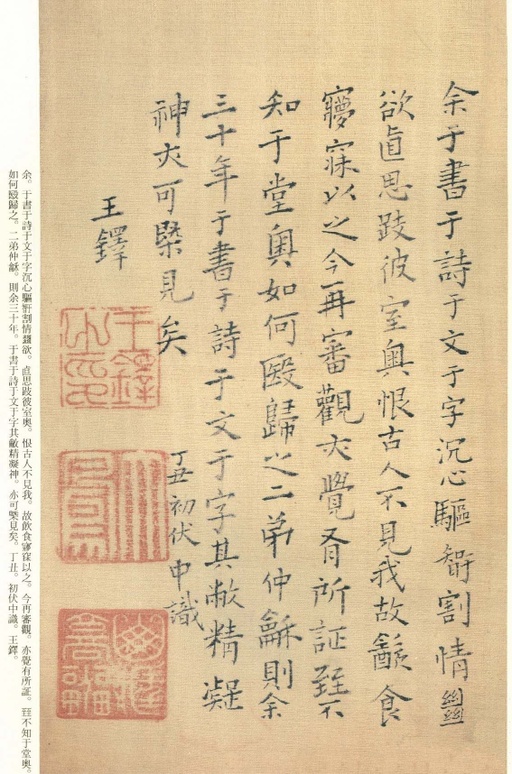 余于書于詩于文于字沉心驅智割情𢇍
欲直思跂彼室奧恨古人不見我故㱃食
寢寐以之今再審觀亦覺有所証至不
知于堂奧如何殹歸之二弟仲龢則余
三十年于書于詩于文于字其敝精凝
神亦可槩見矣
丁丑初伏中識
王鐸
王鐸之印
余。于書于詩于文于字沉心驅智割情𢇍欲。直思跂彼室奧。恨古人不見我。故飲食寤寐以之。今再審觀。亦覺有所証。至不知于堂奧。
如何殹歸之。二弟仲龢。則余三十年。于書于詩于文于字其敝精凝神。亦可槩見矣。丁丑。初伏中識。王鐸。